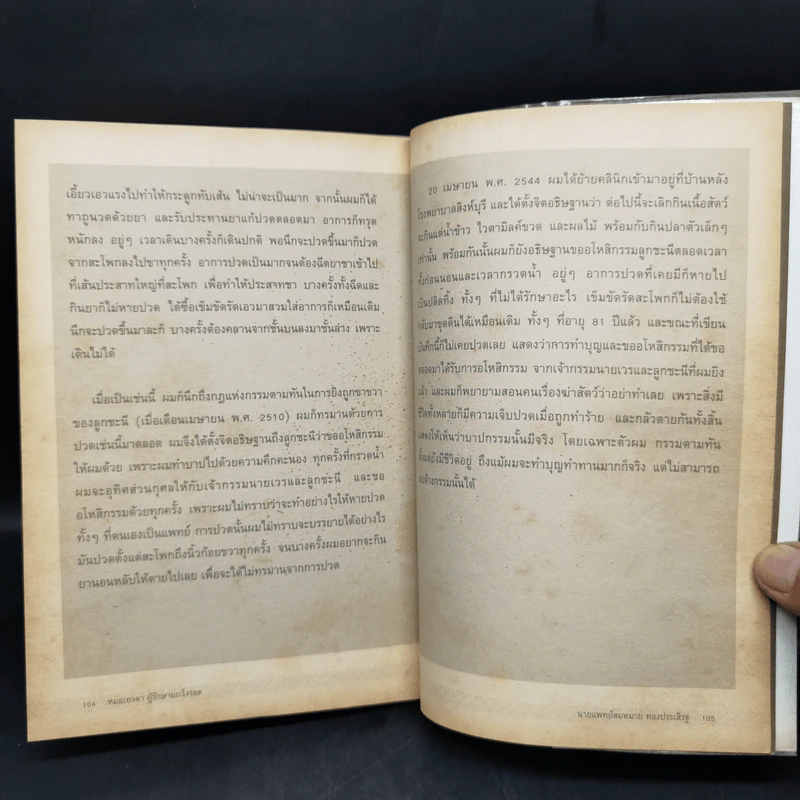 เอี้ยวเอวแรงไปทำให้กระดูกทับเส้น ไม่น่าจะเป็นมาก จากนั้นผมก็ได้
ทาถูนวดด้วยยา และรับประทานยาแก้ปวดตลอดมา อาการก็ทรุด
หนักลง อยู่ๆ เวลาเดินบางครั้งก็เดินปกติ พอนึกจะปวดขึ้นมาก็ปวด
จากสะโพกลงไปขาทุกครั้ง อาการปวดเป็นมากจนต้องฉีดยาชาเข้าไป
ที่เส้นประสาทใหญ่ที่สะโพก เพื่อทำให้ประสาทชา บางครั้งทั้งฉีดและ
กินยาก็ไม่หายปวด ได้ซื้อเข็มขัดรัดเอวมาสวมใส่อาการก็เหมือนเดิม
นึกจะปวดขึ้นมาละก็ บางครั้งต้องคลานจากชั้นบนลงมาชั้นล่าง เพราะ
เดินไม่ได้
เมื่อเป็นเช่นนี้ ผมก็นึกถึงกฎแห่งกรรมตามทันในการยิงถูกขาขวา
ของลูกชะนี (เมื่อเดือนเมษายน พ.ศ. 2510) ผมก็ทรมานด้วยการ
ปวดเช่นนี้มาตลอด ผมจึงได้ตั้งจิตอธิษฐานถึงลูกชะนีว่าขออโหสิกรรม
ให้ผมด้วย เพราะผมทำบาปไปด้วยความคึกคะนอง ทุกครั้งที่กรวดน้ำ
ผมจะอุทิศส่วนกุศลให้กับเจ้ากรรมนายเวรและลูกชะนี และขอ
อโหสิกรรมด้วยทุกครั้ง เพราะผมไม่ทราบว่าจะทำอย่างไรให้หายปวด
ทั้งๆ ที่ตนเองเป็นแพทย์ การปวดนั้นผมไม่ทราบจะบรรยายได้อย่างไร
มันปวดตั้งแต่สะโพกถึงนิ้วก้อยขวาทุกครั้ง จนบางครั้งผมอยากจะกิน
ยานอนหลับให้ตายไปเลย เพื่อจะได้ไม่ทรมานจากการปวด
104 หมอเทวดา ผู้รักษามะเร็งรอด
20 เมษายน พ.ศ. 2544 ผมได้ย้ายคลินิกเข้ามาอยู่ที่บ้านหลัง
โรงพยาบาลสิงห์บุรี และได้ตั้งจิตอธิษฐานว่า ต่อไปนี้จะเลิกกินเนื้อสัตว์
จะกินแต่น้ำข้าว ไวตามิลค์ขวด และผลไม้ พร้อมกับกินปลาตัวเล็กๆ
เท่านั้น พร้อมกันนั้นผมก็ยังอธิษฐานขออโหสิกรรมลูกชะนีตลอดเวลา
ทั้งก่อนนอนและเวลากรวดน้ำ อยู่ๆ อาการปวดที่เคยมีก็หายไป
เป็นปลิดทิ้ง ทั้งๆ ที่ไม่ได้รักษาอะไร เข็มขัดรัดสะโพกก็ไม่ต้องใช้
กลับมาขุดดินได้เหมือนเดิม ทั้งๆ ที่อายุ 81 ปีแล้ว และขณะที่เขียน
บันทึกนี้ก็ไม่เคยปวดเลย แสดงว่าการทำบุญและขออโหสิกรรมที่ได้ขอ
ตลอดมาได้รับการอโหสิกรรม จากเจ้ากรรมนายเวรและลูกชะนีที่ผมยิง
แล้ว และผมก็พยายามสอนคนเรื่องฆ่าสัตว์ว่าอย่าทำเลย เพราะสิ่งมี
ชีวิตทั้งหลายก็มีความเจ็บปวดเมื่อถูกทำร้าย และกลัวตายกันทั้งสิ้น
แสดงให้เห็นว่าบาปกรรมนั้นมีจริง โดยเฉพาะตัวผม กรรมตามทัน
ตั้งแต่ยังมีชีวิตอยู่ ถึงแม้ผมจะทำบุญทำทานมากก็จริง แต่ไม่สามารถ
ลบล้างกรรมนั้นได้
นายแพทย์สมหมาย ทองประเสริฐ 105